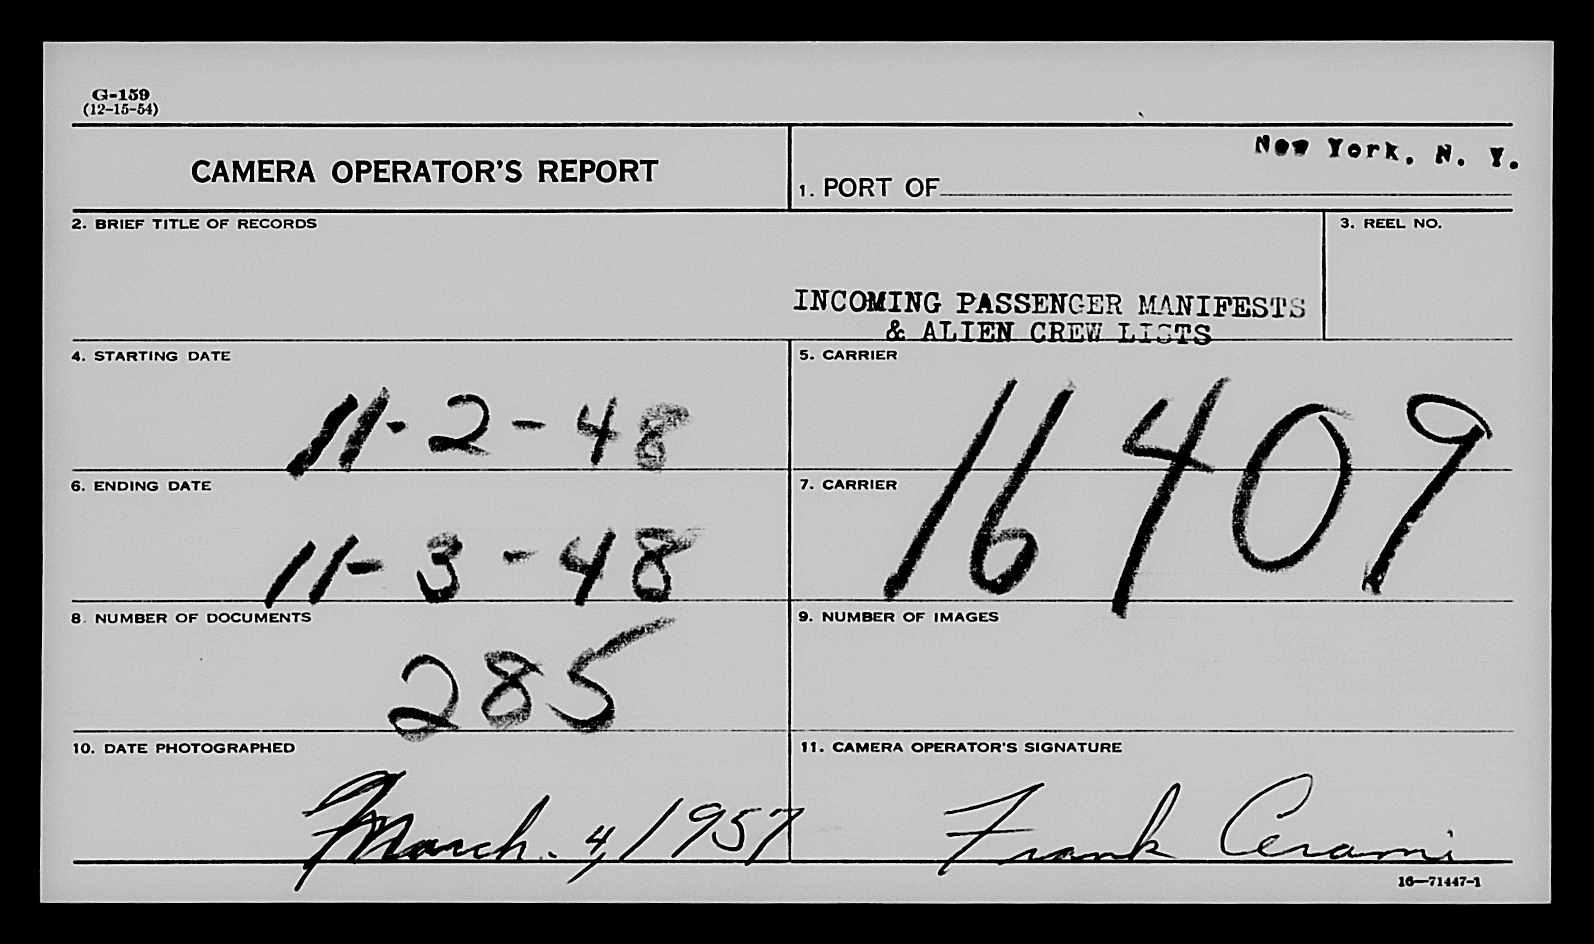 G-159
(12-15-54)
CAMERA OPERATOR'S REPORT
New York, N. Y.
1. PORT OF
2. BRIEF TITLE OF RECORDS
3. REEL NO.
INCOMING PASSENGER MANIFESTS
& ALIEN CREW LISTS
4. STARTING DATE
11-2-48
5. CARRIER
16409
6. ENDING DATE
11-3-48
7. CARRIER
8. NUMBER OF DOCUMENTS
285
9. NUMBER OF IMAGES
10. DATE PHOTOGRAPHED
March. 4, 1957
11. CAMERA OPERATOR'S SIGNATURE
Frank Cerami
16—71447-1